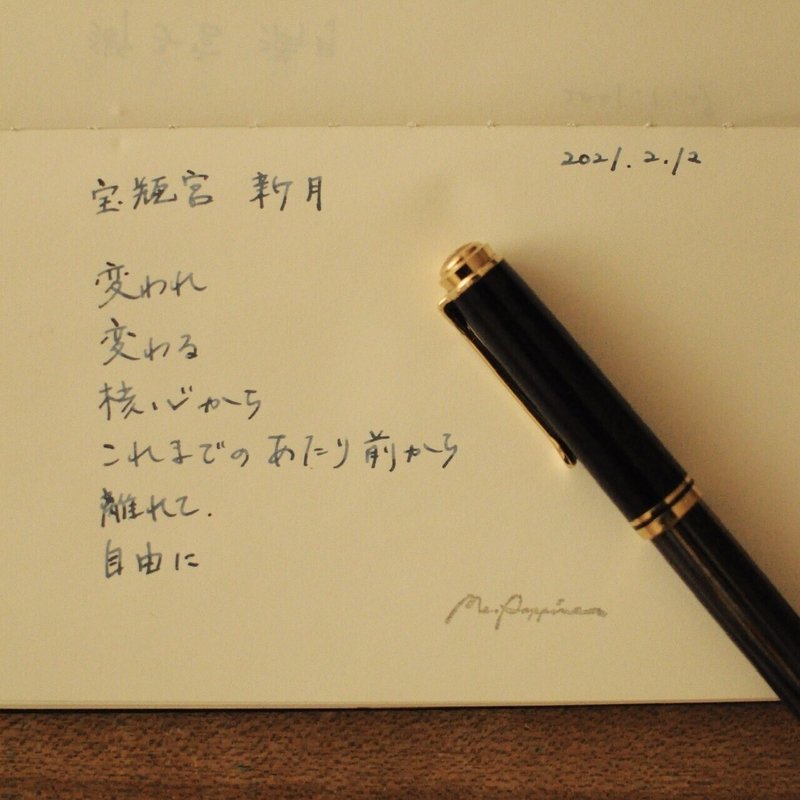 2021.2.12
宝瓶宮 新月
変われ
変わる
核心から
これまでの あたり前から
離れて.
自由に